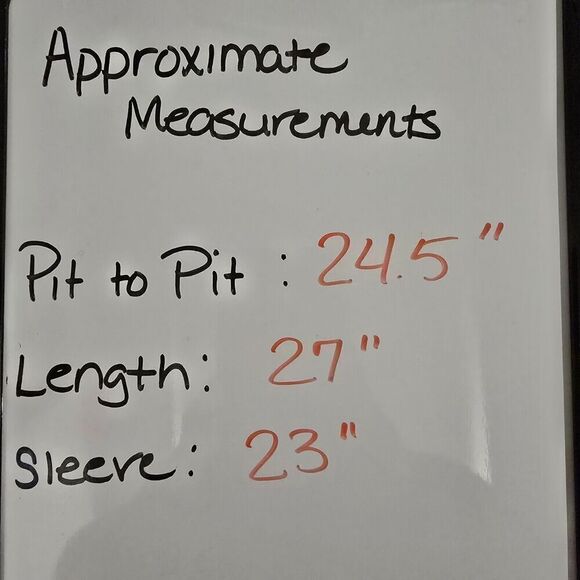 Approximate
Measurements
Pit to Pit : 24.5"
Length: 27"
Sleeve: 23"